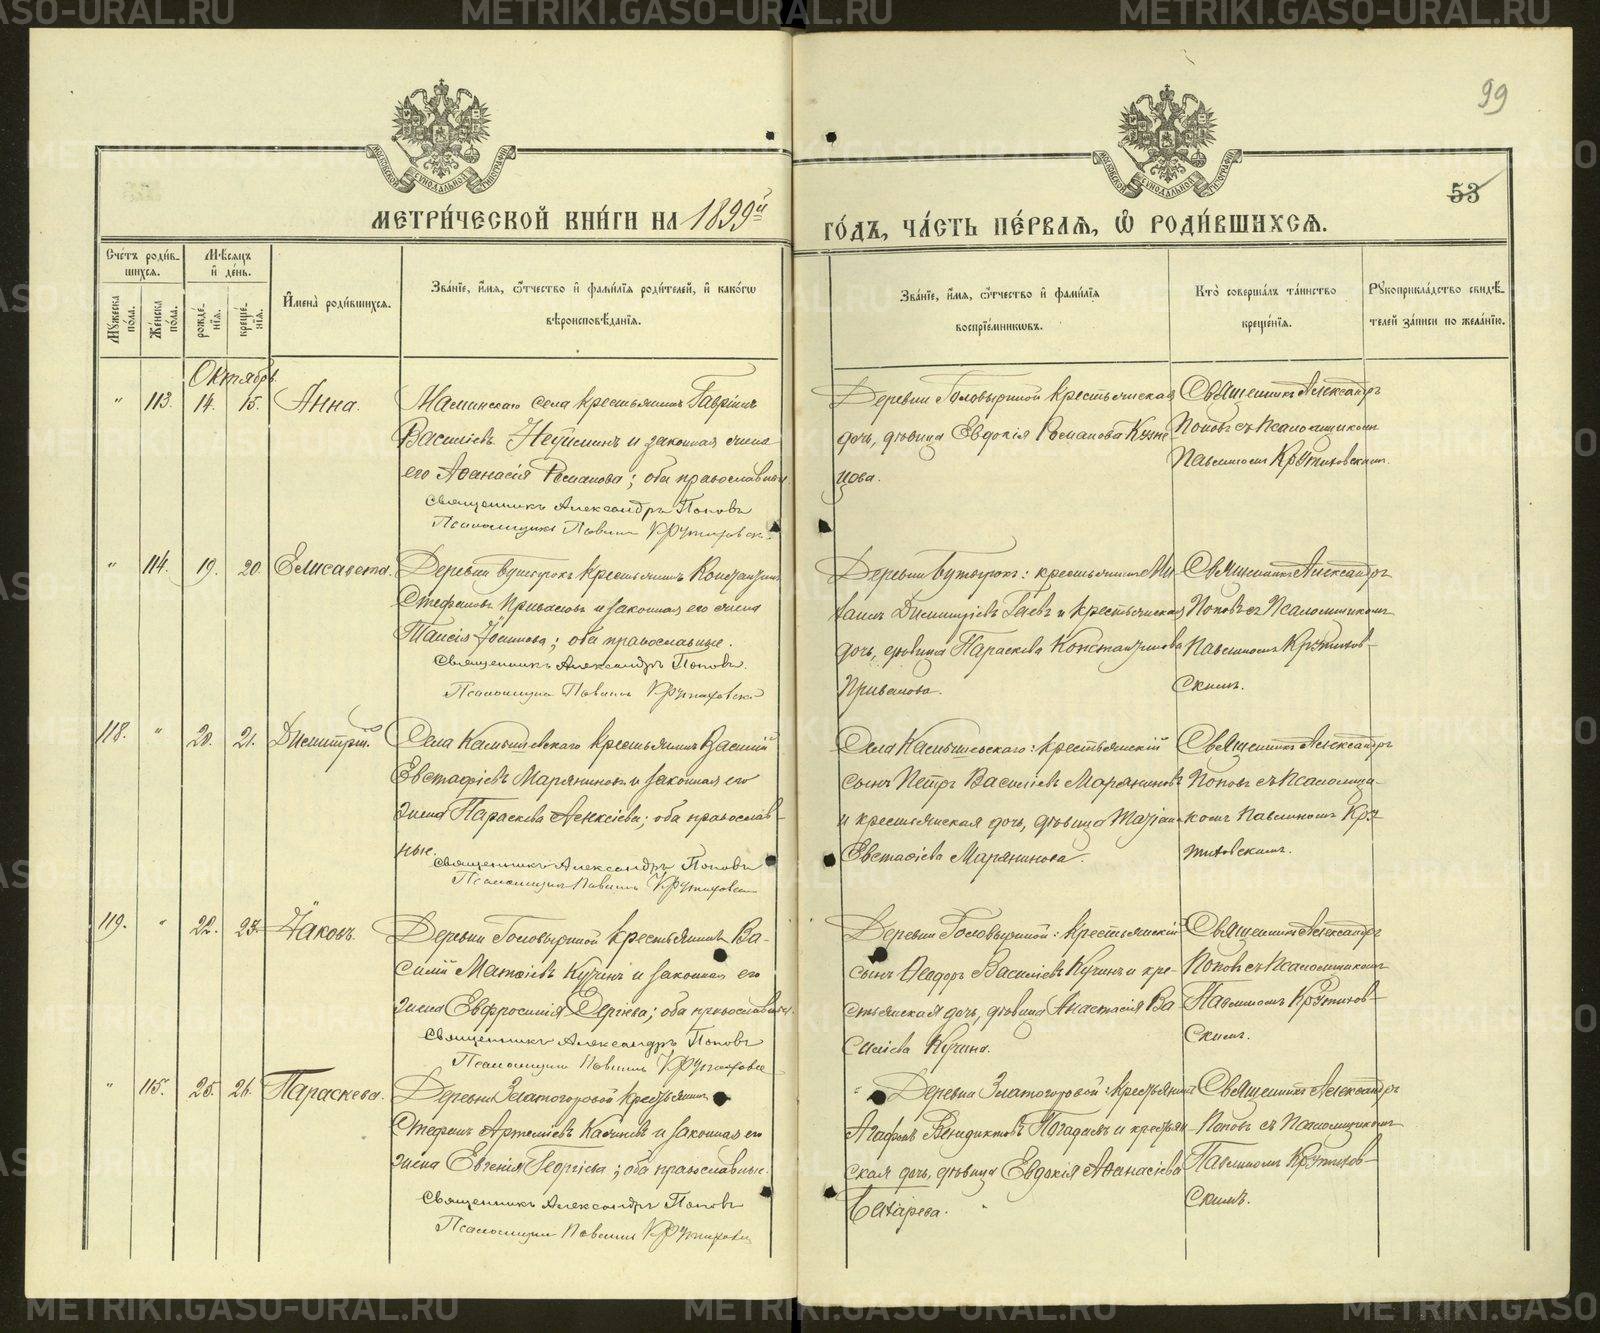 METRIKI.GASO-URAL.RU
99
МОСКОВСКОЙ СѴНОДАЛЬНОЙ ТИПОГРАФІИ
МОСКОВСКОЙ СѴНОДАЛЬНОЙ ТИПОГРАФІИ
53
МЕТРИ́ЧЕСКОЙ КНИ́ГИ НА 1899й
ГО́ДЪ, ЧА́СТЬ ПЕ́РВАѦ, Ѽ РОДИ́ВШИХСѦ.
Сче́тъ роди́в-
шихся.
Мѣ́сяцъ
и҆ де́нь.
Мꙋ́жеска по́ла.
Же́нска по́ла.
рожде́-
нїѧ.
креще́-
нїѧ.
И҆мена̀ роди́вшихсѧ.
Зва́нїе, и҆́мѧ, ѻ҆́тчество и҆ фами́лїѧ роди́телей, и҆ како́гѡ
вѣроисповѣ́данїѧ.
Зва́нїе, и҆́мѧ, ѻ҆́тчество и҆ фами́лїѧ
воспрїе́мникѡвъ.
Кто̀ соверша́лъ та́инство
креще́нїѧ.
Рꙋкоприкла́дство свидѣ́-
телей за́писи по жела́нїю.
Октябрь
" 113. 14. 15. Анна.
Маминскаго села крестьянинъ Гавріилъ
Василіевъ и законная жена
его Аѳанасія Романова; оба православные
Священникъ Александръ Поповъ
Псаломщикъ Павлинъ Крутиховскій
Деревни Головыриной крестьянская
дочь, дѣвица Евдокія Романова Кузне-
цова.
Священникъ Александръ
Поповъ съ Псаломщикомъ
Павлиномъ Крутиховскимъ.
" 114. 19. 20. Елисавета.
Деревни Бутырокъ крестьянинъ Константинъ
Стефановъ Приваловъ и законная его жена
Таисія Іоаннова; оба православные.
Священникъ Александръ Поповъ
Псаломщикъ Павлинъ Крутиховскій
Деревни Бутырокъ: крестьянинъ Ми-
хаилъ Димитріевъ Гаевъ и крестьянская
дочь, дѣвица Параскева Константинова
Привалова.
Священникъ Александръ
Поповъ съ Псаломщикомъ
Павлиномъ Крутихов-
скимъ.
118. " 20. 21. Димитрій.
Села Камышевскаго крестьянинъ Василій
Евстафіевъ Марянинovъ и законная его
жена Параскева Алексіева; оба православ-
ные.
Священникъ Александръ Поповъ
Псаломщикъ Павлинъ Крутиховскій
Села Камышевскаго: крестьянскій
сынъ Петръ Василіевъ Маряниновъ
и крестьянская дочь, дѣвица
Евстафіева Марянинова.
Священникъ Александръ
Поповъ съ Псаломщи-
комъ Павлиномъ Кру-
тиховскимъ.
119. " 22. 23. Іаковъ.
Деревни Головыриной крестьянинъ Ва-
силій Матѳіевъ Кучинъ и законная его
жена Евфросинія Сергіева; оба православные.
Священникъ Александръ Поповъ
Псаломщикъ Павлинъ Крутиховскій
Деревни Головыриной: крестьянскій
сынъ Ѳеодоръ Василіевъ Кучинъ и кре-
стьянская дочь, дѣвица Анастасія Ва-
силіева Кучина.
Священникъ Александръ
Поповъ съ Псаломщикомъ
Павлиномъ Крутихов-
скимъ.
" 115. 25. 26. Параскева.
Деревни Златогоровой крестьянинъ
Стефанъ Артеміевъ и законная его
жена Евгенія Георгіева; оба православные.
Священникъ Александръ Поповъ
Псаломщикъ Павлинъ Крутиховскій
Деревни Златогоровой: крестьянинъ
Агафонъ Венедиктовъ и крестьян-
ская дочь, дѣвица Евдокія Аѳанасіева
Бахарева.
Священникъ Александръ
Поповъ съ Псаломщикомъ
Павлиномъ Крутихов-
скимъ.